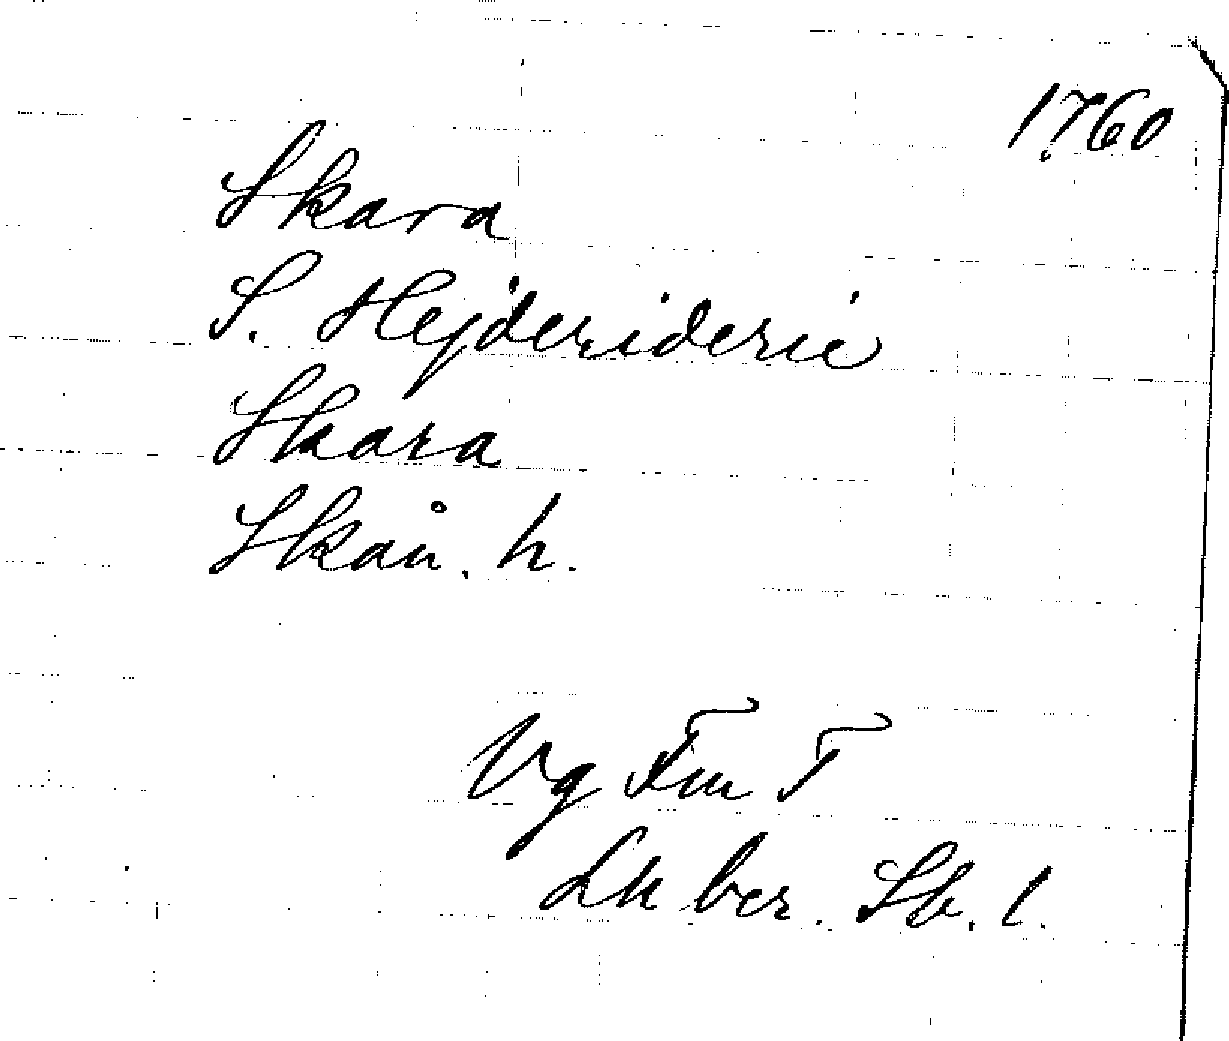 1760
Skara
S. Hejderiderie
Skara
Skån. h.
Vg Fm T
Lh ber. Sb. 1.